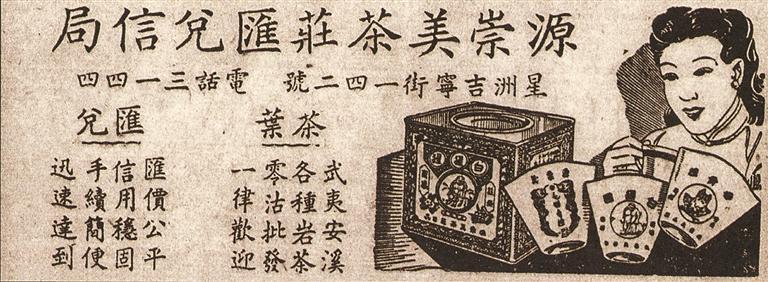 源崇美茶莊匯兌信局
星洲吉寧街一四二號　電話三一四四
茶葉
武夷安溪
各種岩茶
零沽批發
一律歡迎
匯兌
匯價公平
信用穩固
手續簡便
迅速達到